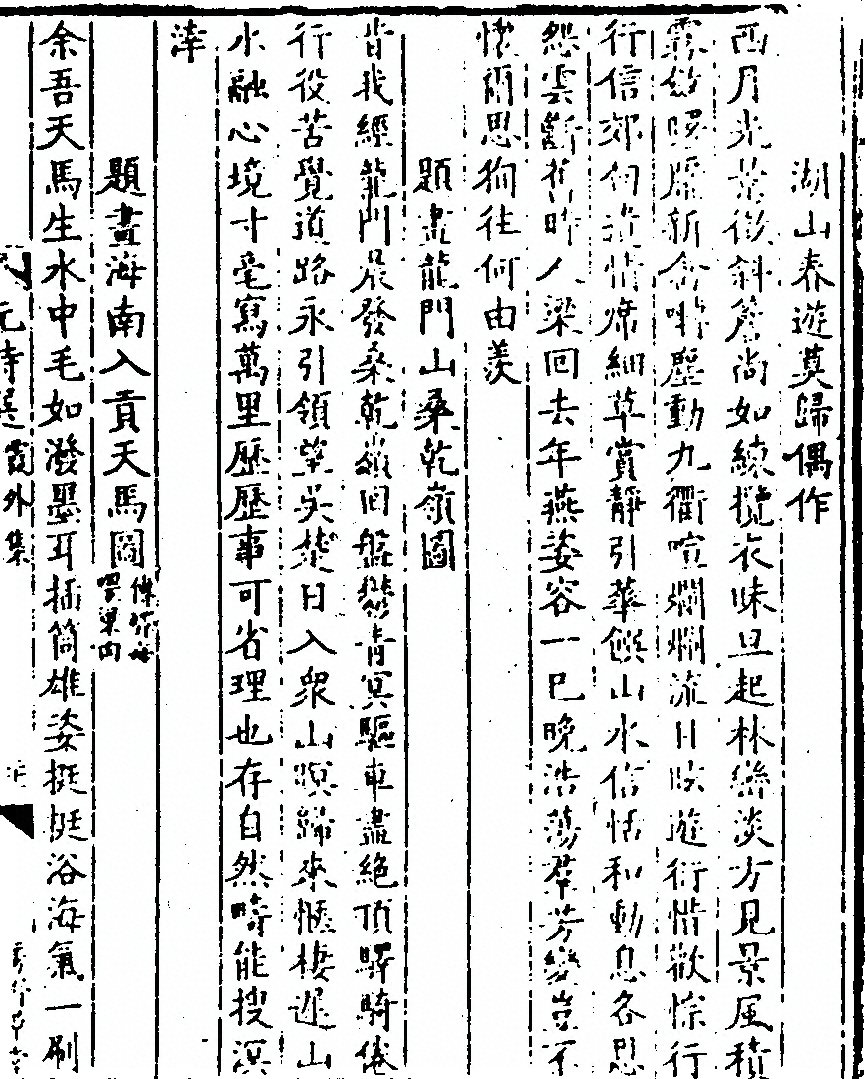 湖山春遊莫歸偶作
西月光景欲斜詹尚如練攬衣昧旦起林巒淡方見景風積
新 塵動九衢喧爛爛流日 遊衍惜歡悰行
行信郊 情席細草賞靜引華饌山水信恬和動息各思
怨雲斷舊昨人梁回去年燕姿容一已晚浩蕩羣芳變豈不
懷爾思徇往何由羨
題畫龍門山桑乾嶺圖
昔我經龍門晨發桑乾嶺回盤鬱青冥驅車盡絕頂驛騎倦
行役苦覺道路永引領望吳楚日入衆山暝歸來愜棲遲山
水融心境寸毫寫萬里歷歷事可省理也存自然疇能搜溟
涬
題畫海南入貢天馬圖
余吾天馬生水中毛如潑墨耳插筒雄姿挺挺浴海氣一刷
元詩選 霞外集 秀野草堂